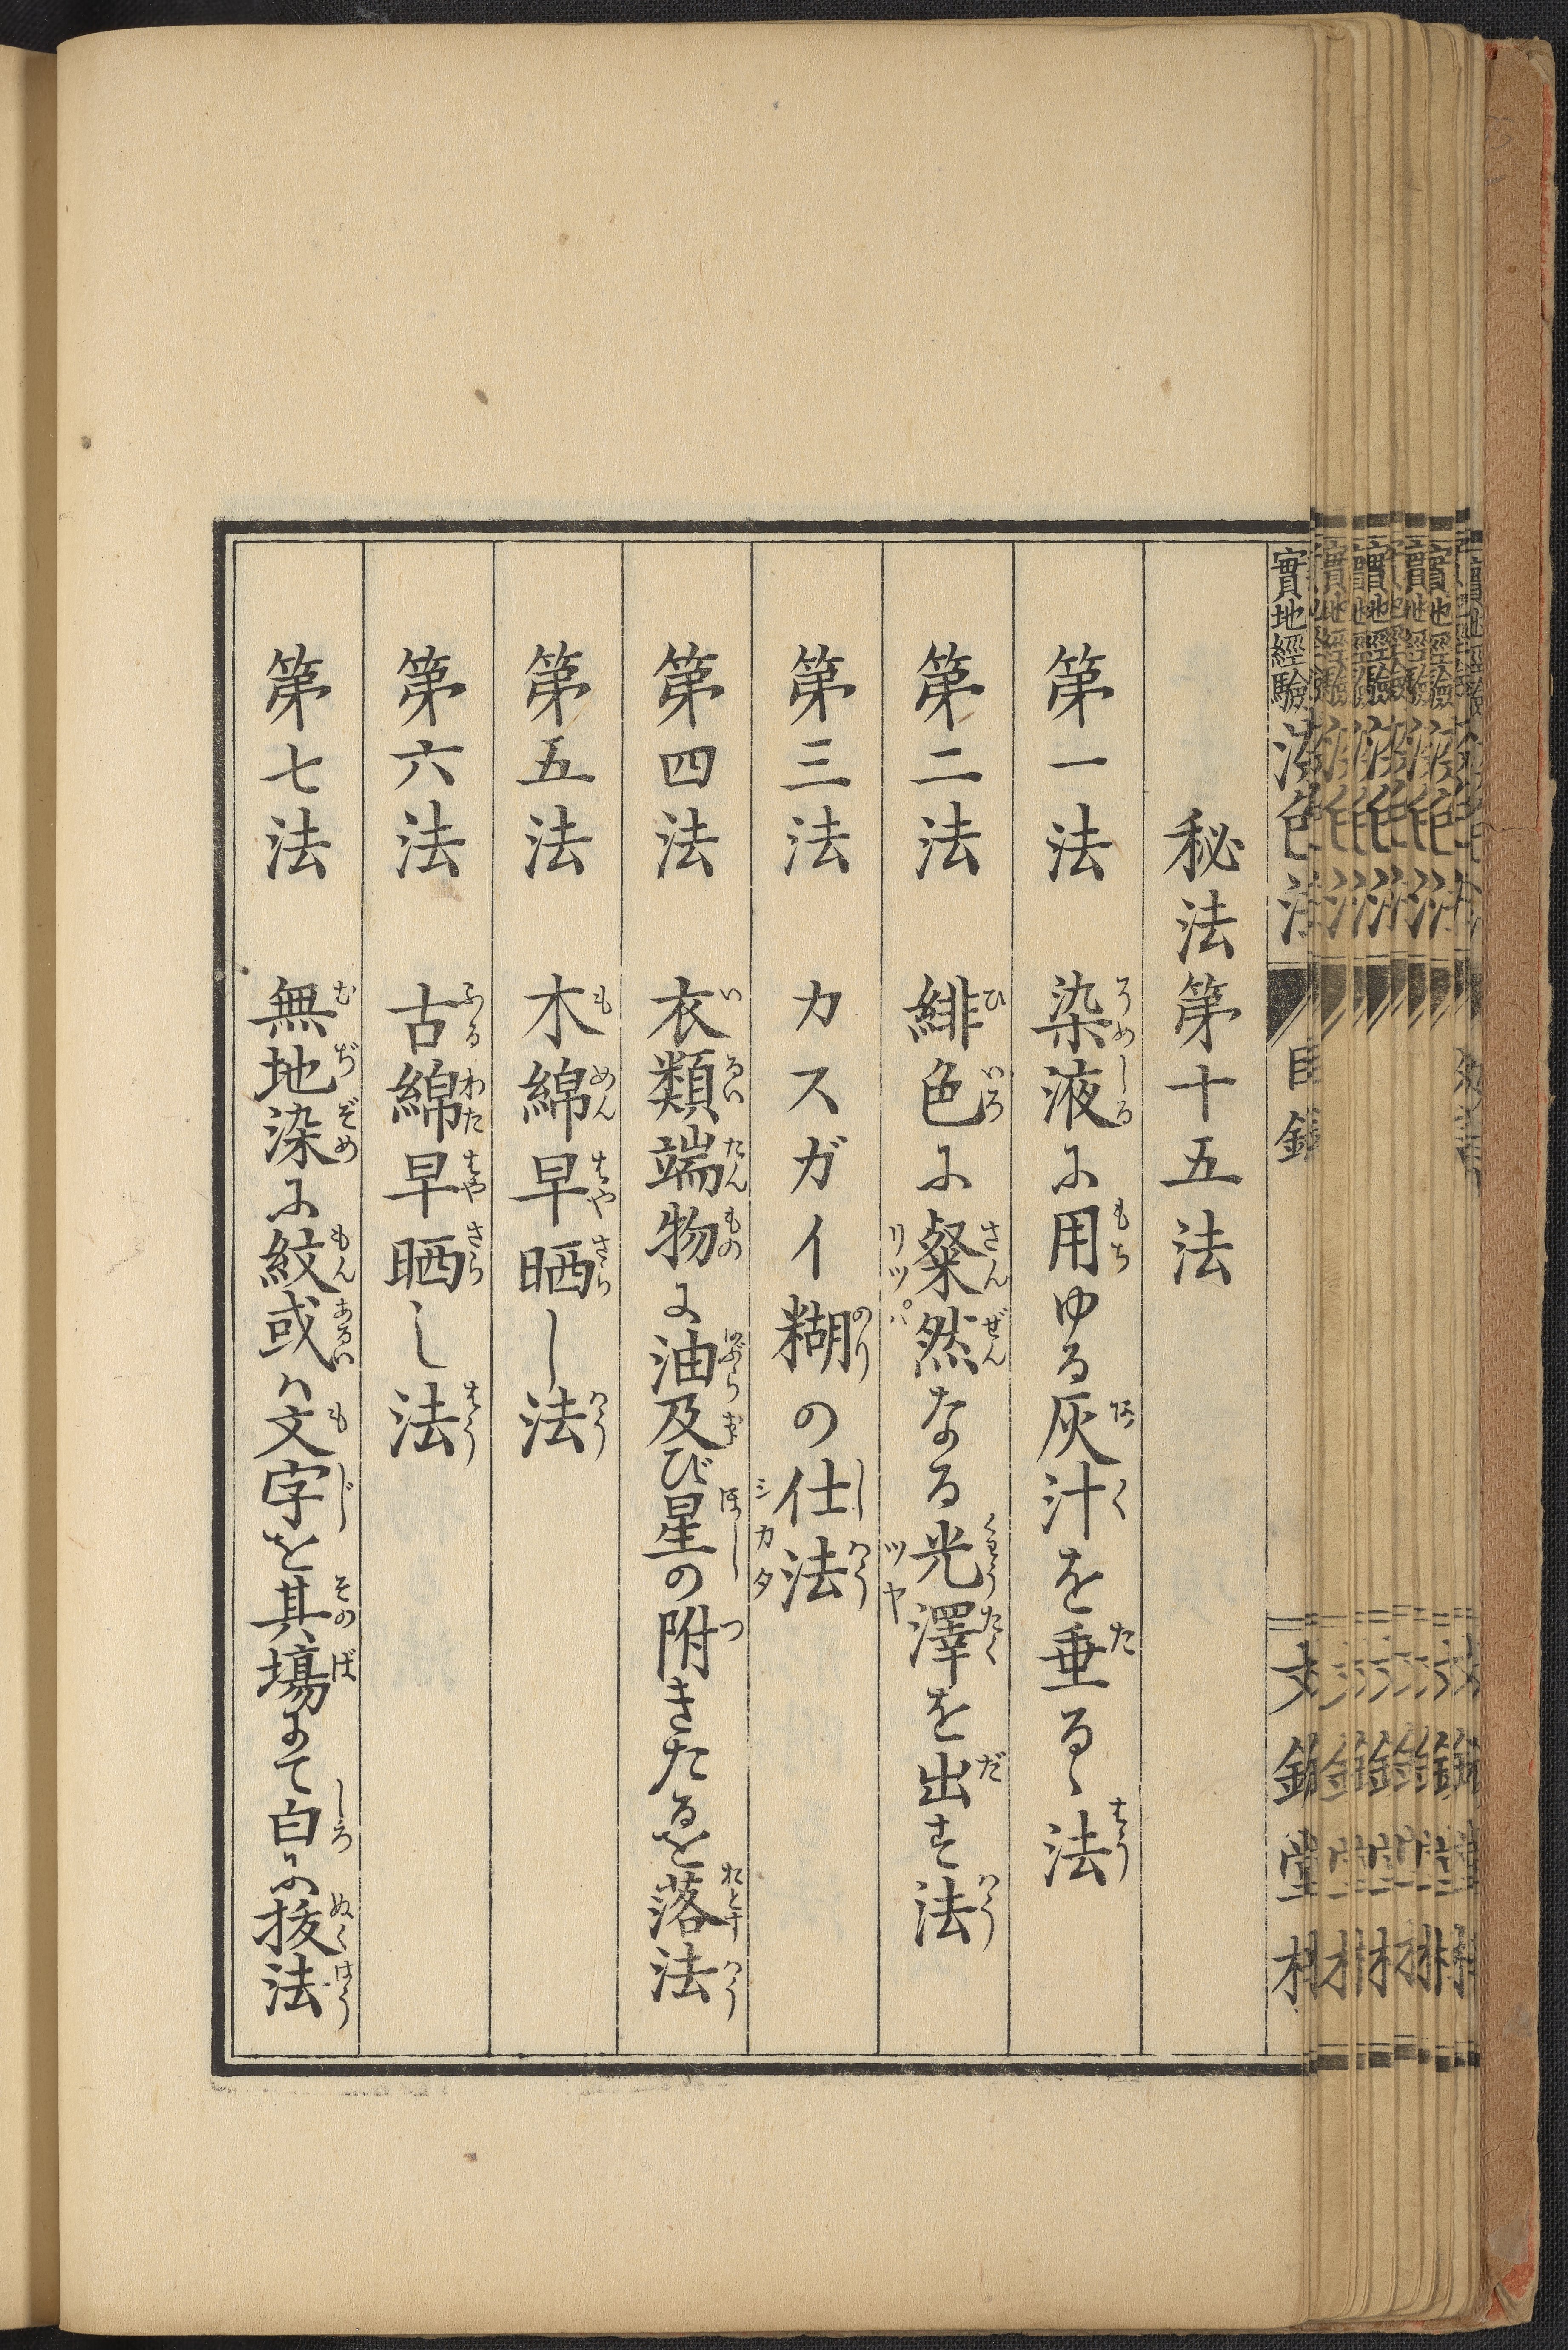 實地經驗
目錄
文錦堂
秘法第十五法
第一法 染液に用ゆる灰汁を垂るゝ法
第二法 緋色に粲然なる光澤を出す法
第三法 カスガイ糊の仕法
第四法 衣類端物に油及び星の附きたるを落法
第五法 木綿早晒し法
第六法 古綿早晒し法
第七法 無地染に紋或ハ文字を其塲にて白に拔法